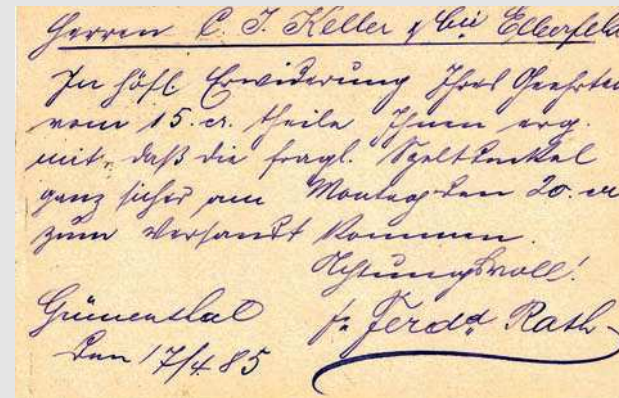 Herren C. T. Keller & bei Elberfeld
In höfl. Erwiderung Ihres Geehrten
vom 15. cr. theile Ihnen erg.
mit, daß die fragl.
ganz sicher am Montag den 20. cr
zum Versandt kommen.
Achtungsvoll!
Grünenthal
den 17/4 85
Ferdd Rath